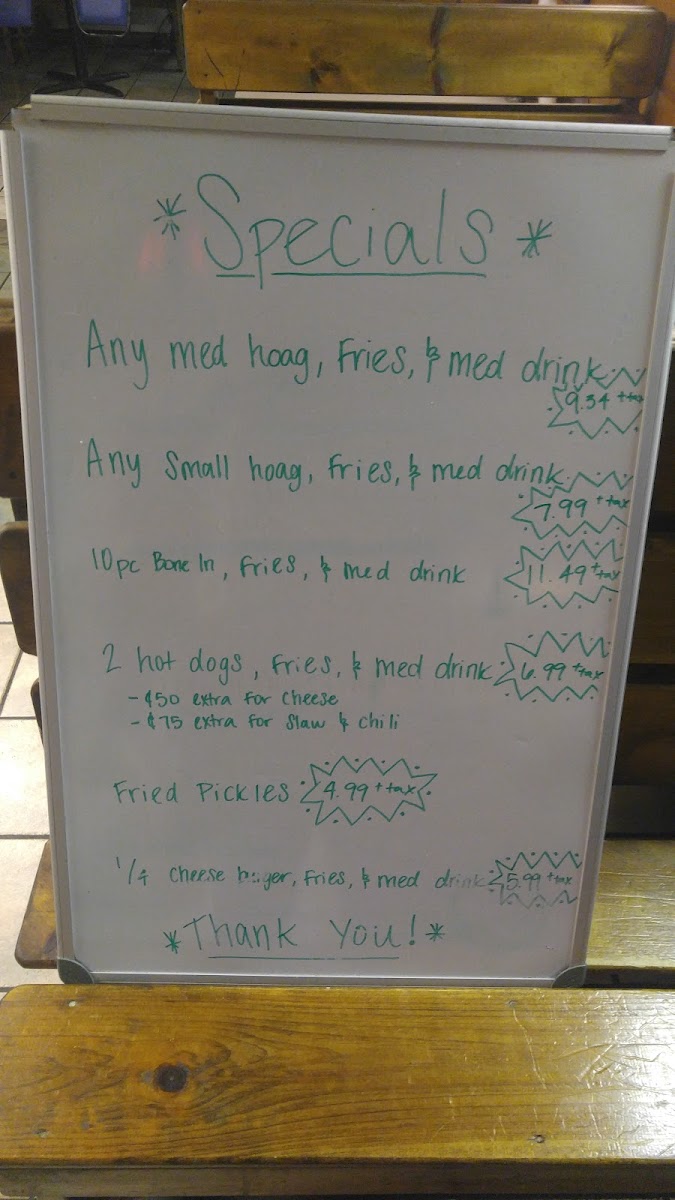 *Specials*
Any med hoag, Fries, & med drink
9.34 + tax
Any Small hoag, Fries, & med drink
7.99 + tax
10pc Bone In, Fries, & med drink 11.49 + tax
2 hot dogs, Fries, & med drink 6.99 + tax
- ¢50 extra for cheese
- ¢75 extra for Slaw & Chili
Fried Pickles 4.99 + tax
1/4 Cheese burger, Fries, & med drink 5.99 + tax
*Thank You!*